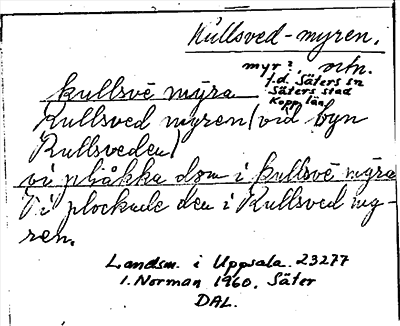 Kullsved-myren.
myr?, ntn.
f.d. Säters sn
Säters stad
Kopp. län
kullsvé mỳra
Kullsved myren (vid byn
Kullsveden)
vi plåkka dom i kullsvé mỳra
Vi plockade den i Kullsved my-
ren.
Landsm. i Uppsala 23277
I. Norman 1960. Säter
DAL.